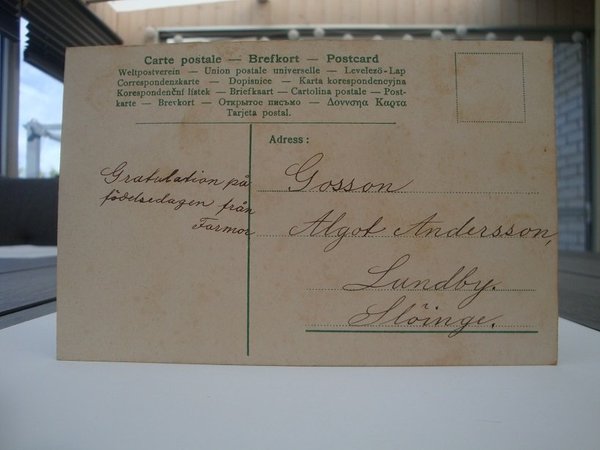 Carte postale — Brefkort — Postcard
Weltpostverein — Union postale universelle — Levelező-Lap
Correspondenzkarte — Dopisnice — Karta korespondencyjna
Korespondenční lístek — Briefkaart — Cartolina postale — Post-
karte — Brevkort — Открытое письмо — Δουνσηα Καρτα
Tarjeta postal.
Adress:
Gratulation på
födelsedagen från
Farmor
Gosson
Algot Andersson,
Lundby.
Slöinge.